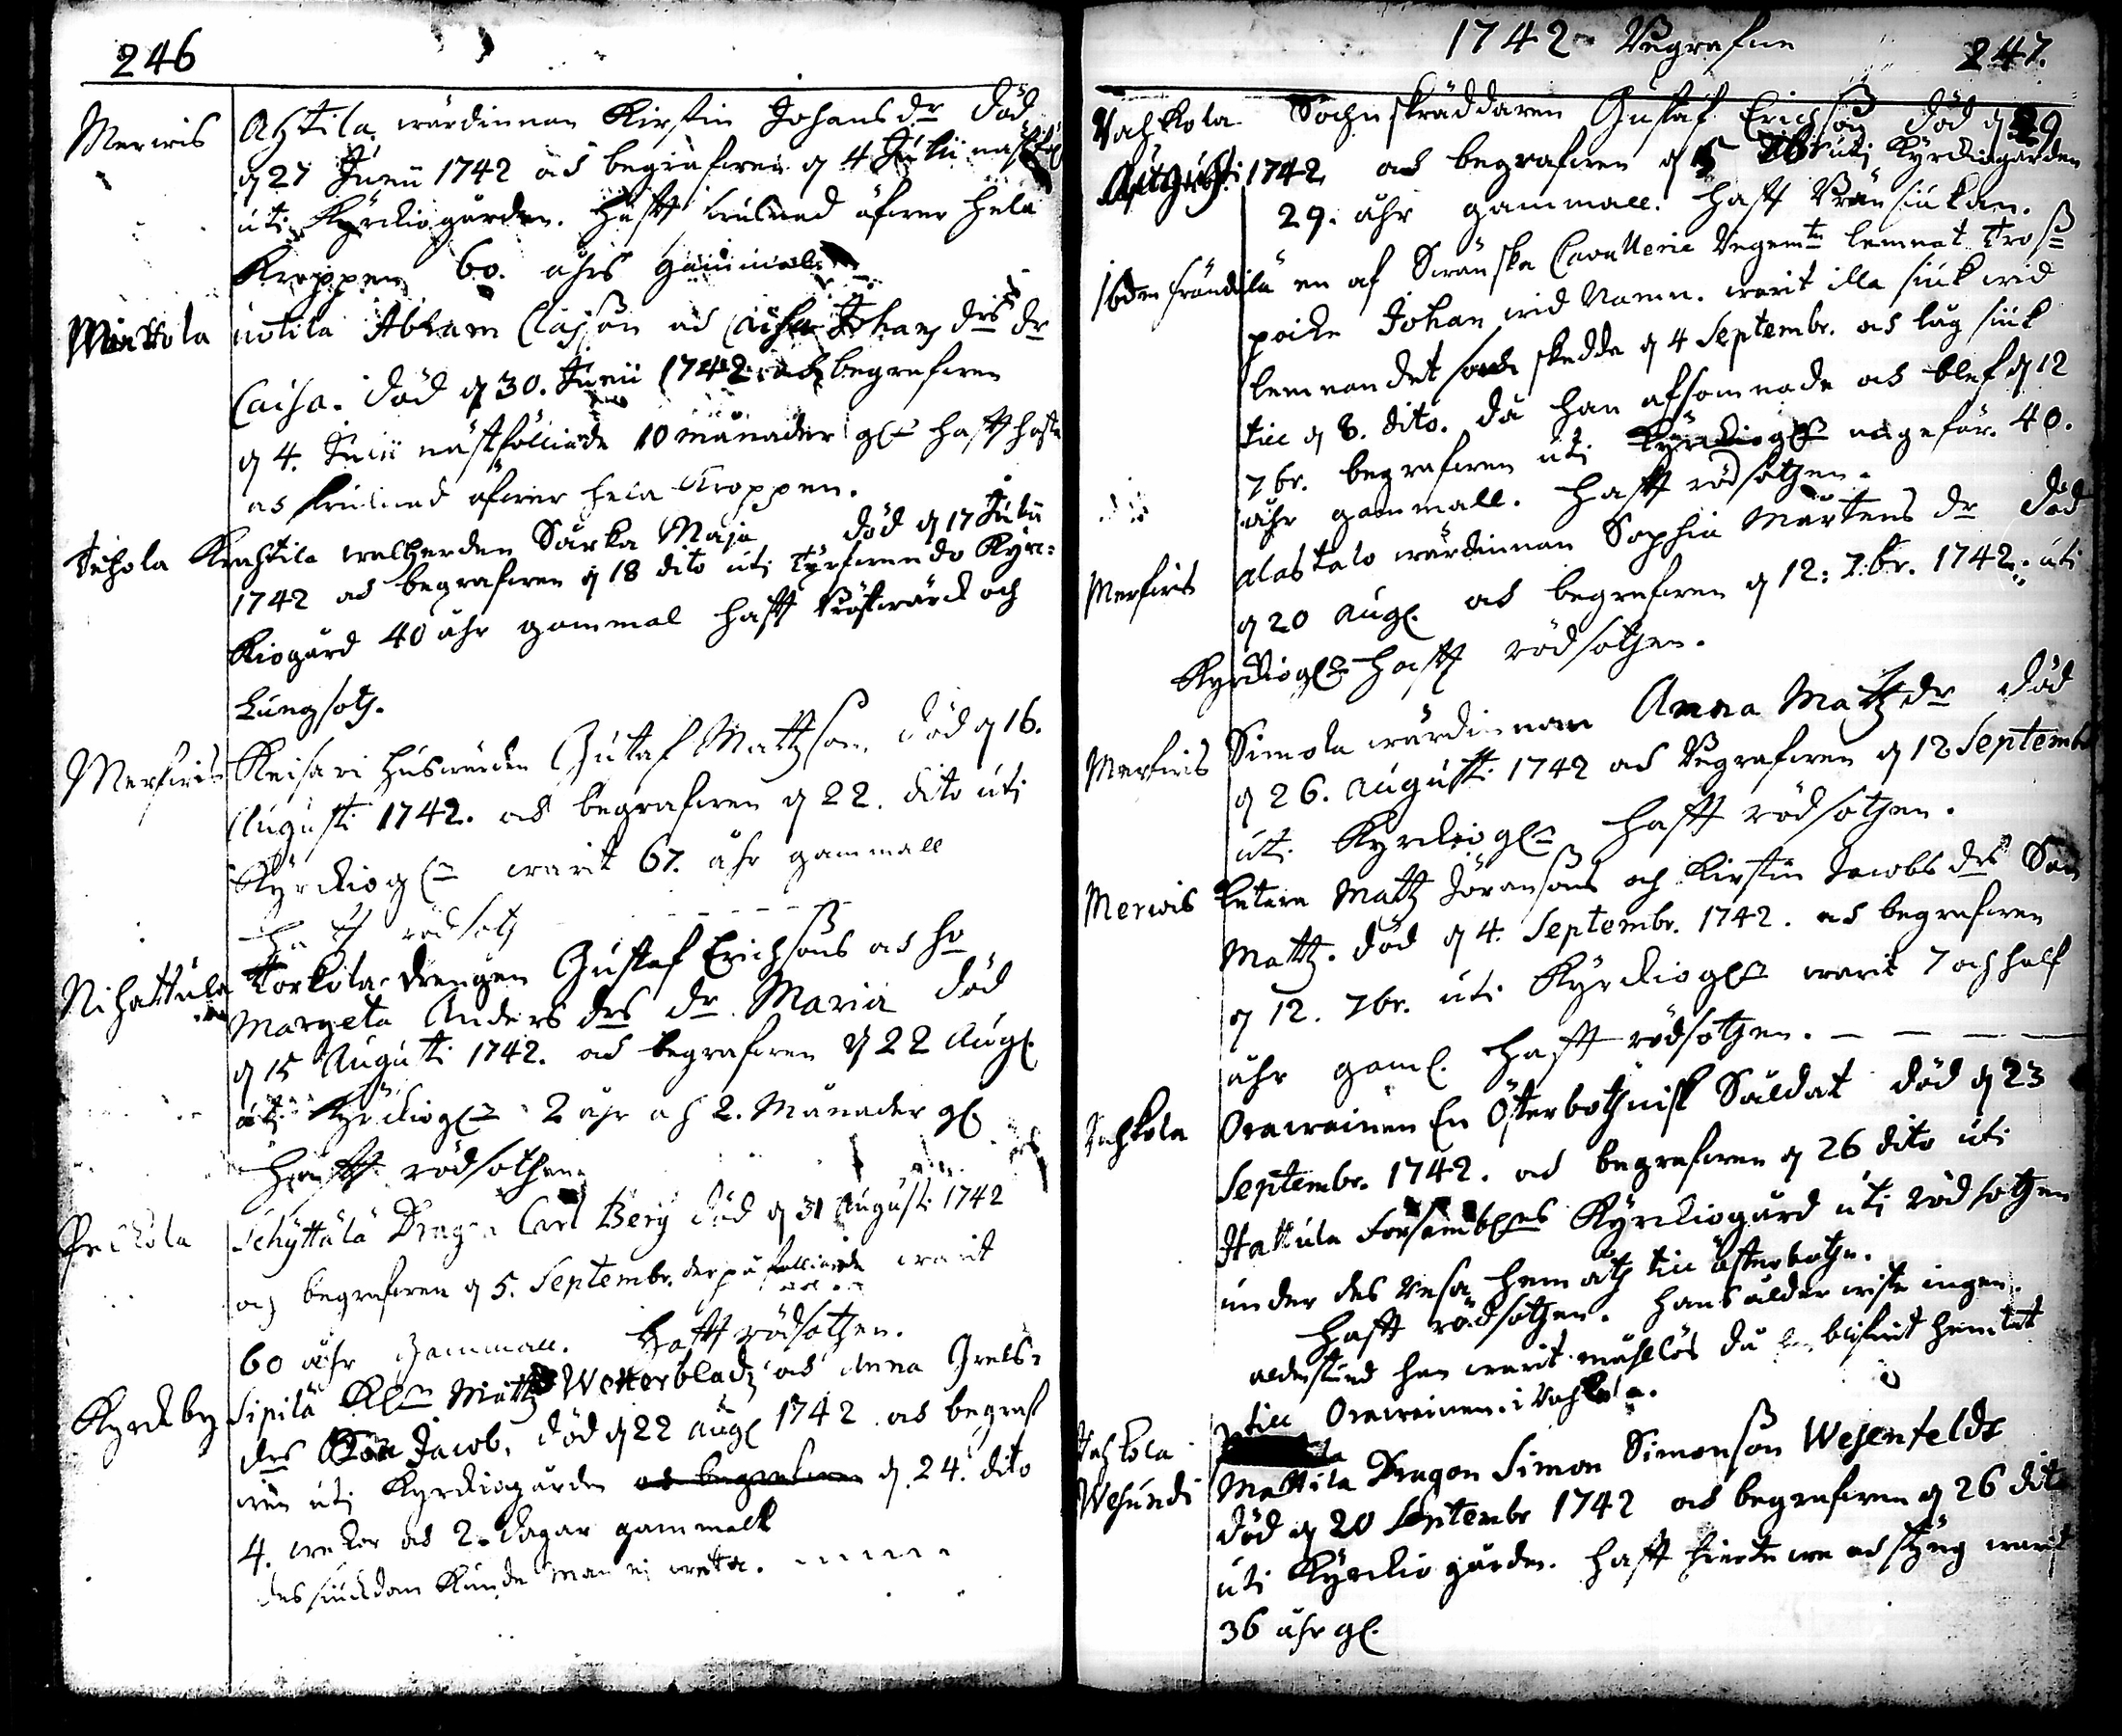 246
Merwis Ahtila wärdinnan Kirstin Johans dr död
d 27 Junii 1742 och begrafwen d 4 Julii
uti Kyrckiogården. Hafft swulnad öfwer hela
Kroppen 60. åhrs gammal
Mierola uotila Abram Classon och Caisa Johans drs dr
Caisa. död d 30. Junii 1742. och begrafwen
d 4. Julii nästföliande 10 månader gl hafft hosta
och swulnad öfwer hela Kroppen.
Ihola Krahtila walherden Sarka Maja död d 17 Julii
1742 och begrafwen d 18 dito uti Tyrfwendo Kyrc=
kiogård 40 åhr gammal hafft bröstwärck och
Lungsoth.
Merfwis Keisari huswärden Gustaf Mattsson död d 16.
Augusti 1742. och begrafwen d 22. dito uti
Kyrckiogln warit 67. åhr gammall
hafft rödsoth
Nihattula Torkola drengen Gustaf Erichsons och ho
Margeta Anders drs dr Maria död
d 15 Augusti 1742. och begrafwen d 22 Aug.
uti Kyrckiogln 2 åhr och 2. Månader gl
hafft rödsothen.
Peckola Schyttälä Dragon Carl Berg död d 31 Augusti 1742
och begrafwen d 5. Septembr. derpåfölliande warit
60 åhr gammall. hafft rödsothen.
Kyrckby Sipilä Matts Wetterbladz och Anna Grels=
drs Son Jacob. död d 22 Aug 1742 och begraf
wen uti Kyrckiogården och begrafwen d. 24. dito
4. wekor och 2. dagar gammalt
des siuckdom kunde man ej weta.
1742 Begrafne 247.
Vahkola Sochnskräddaren Gustaf Erichson död d 29
Augusti 1742 och begrafwen d 5 7br uti Kyrckiogården
29. åhr gammall. hafft Brän siukan.
Ibdm frändilä en af Swänska Cavallerie Regemtn lemnat Tross
poike Johan wid Namn. warit illa siuk wid
lemnandet som skedde d 4 Septembr. och låg siuk
till d 8. dito. då han afsomnade och blef d 12
7br. begrafwen uti Kyrckiogln ungefär. 40.
åhr gammall. hafft rödsothen.
Merfwis alastalo wärdinnan Sophia Mårtens dr död
d 20 Aug. och begrafwen d 12: 7br. 1742. uti
Kyrckiogln hafft rödsothen.
Merfwis Simola wärdinnan Anna Matts dr död
d 26. Augusti 1742 och Begrafwen d 12 Septemb
uti Kyrckiogln hafft rödsothen.
Merwis Matts Jöransons och Kirstin Jacobs drs Son
Matts. död d 4. Septembr. 1742. och begrafwen
d 12. 7br. uti Kyrckiogln warit 7 och half
åhr gaml. hafft rödsothen.
Vahkola Orawainen En Österbothnisk Såldat död d 23
Septembr. 1742. och begrafwen d 26 dito uti
Hattula Forsambl:nes Kyrckiogård uti rödsothen
under des resa hemåth till Österbothn.
hafft rödsothen. hans ålder wiste ingen.
alderstund han warit mållös då han blifwit hemtat
till Orawainen i Vahkola.
Vahkola
Wesundi Mattila Dragon Simon Simonson Wesenfeldt
död d 20 Septembr 1742 och begrafwen d 26 dito
uti Kyrckiogården. hafft hierte we och styng warit
36 åhr gl.